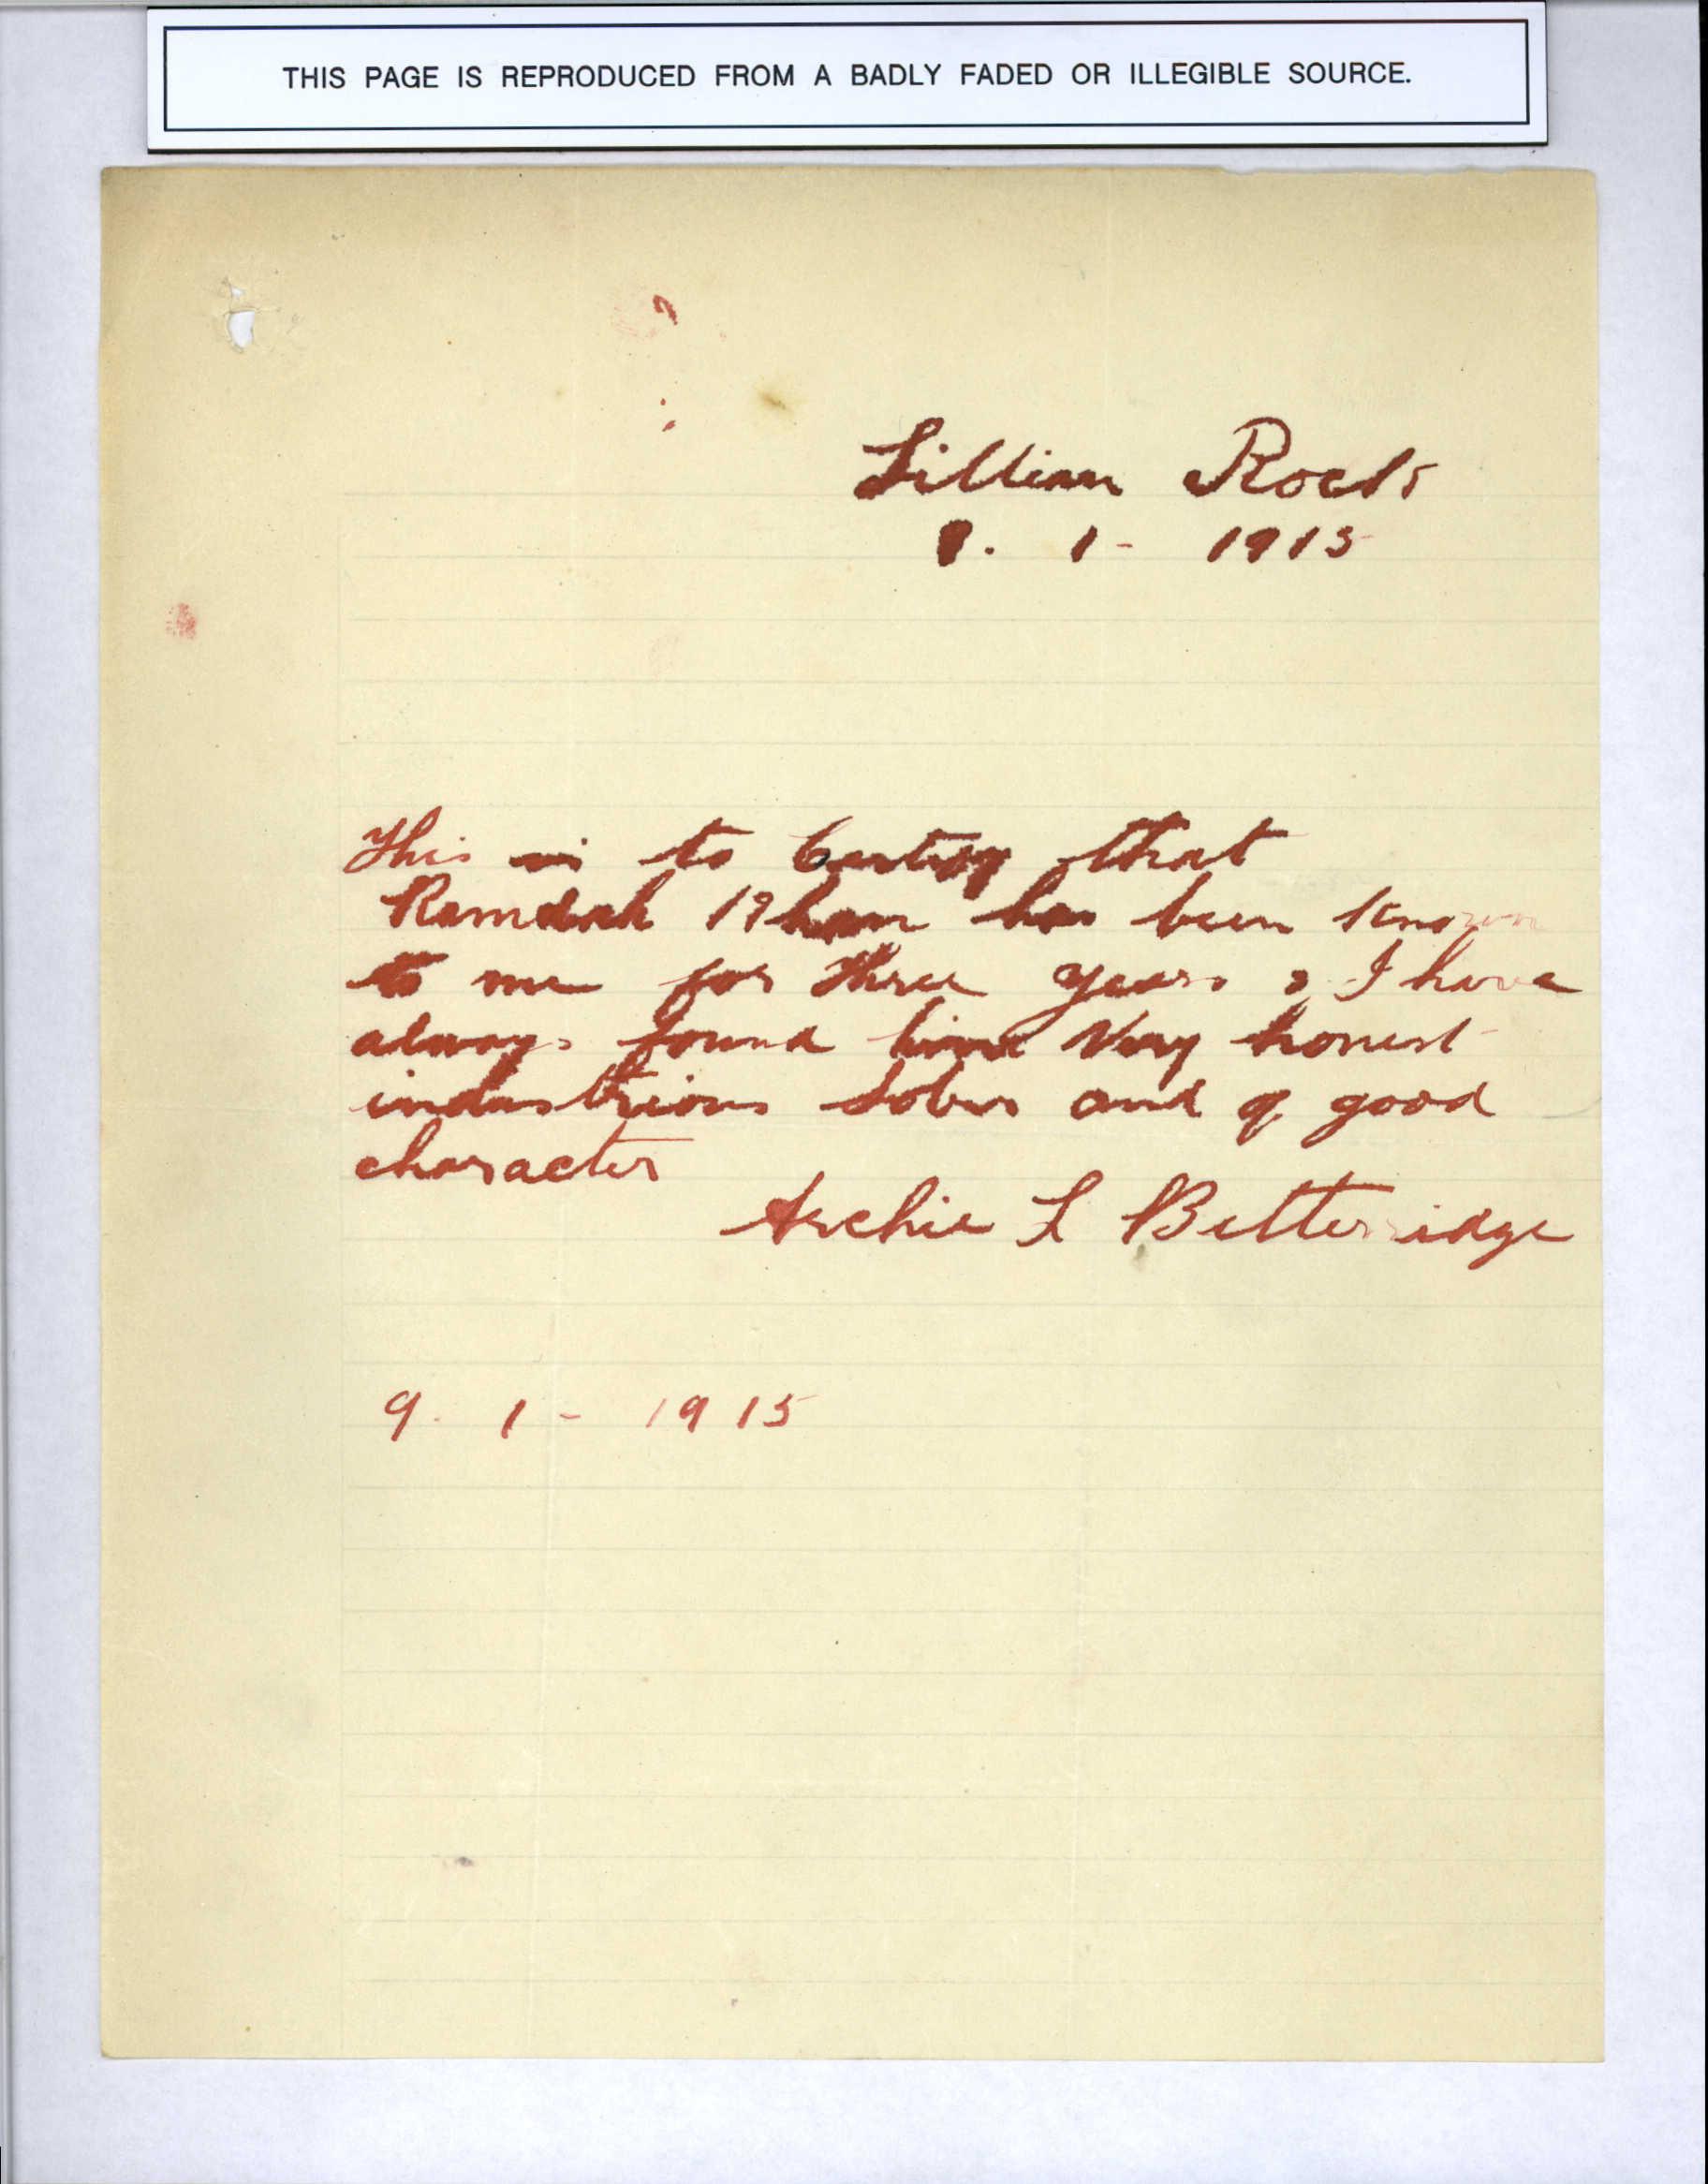 THIS PAGE IS REPRODUCED FROM A BADLY FADED OR ILLEGIBLE SOURCE.
Lillian Rock
9. 1 - 1915
This is to Certify that
Ramdah Khan has been known
to me for three years & I have
always found him very honest
industrious sober and of good
character
Archie L Betteridge
9. 1 - 1915